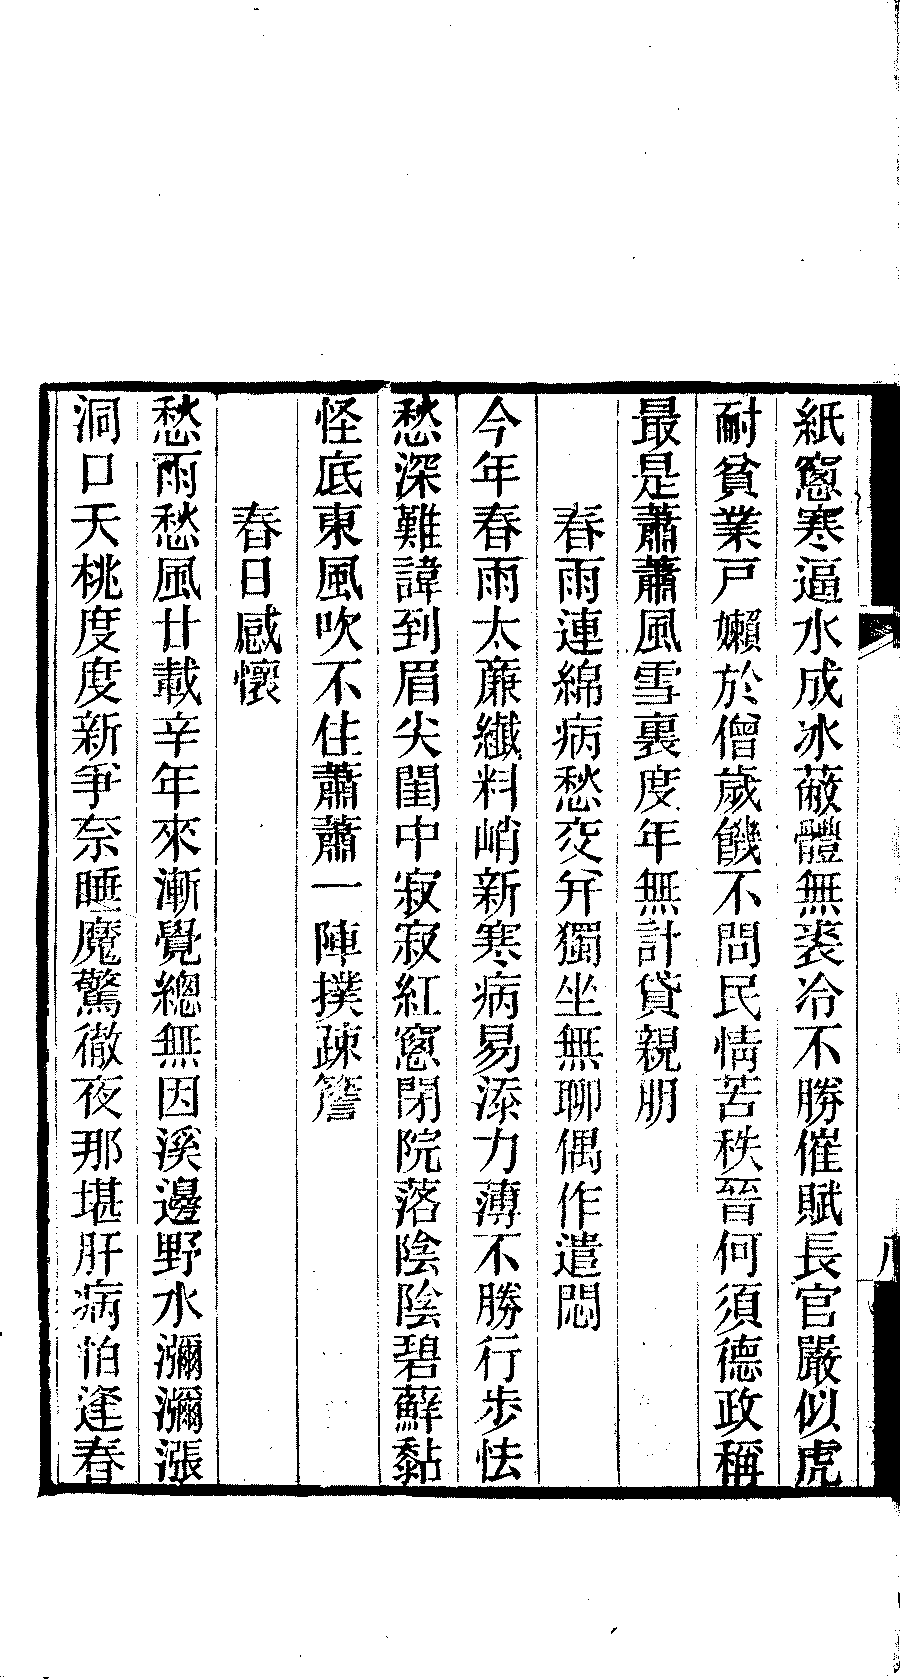 紙窻寒逼水成冰蔽體無裘冷不勝催賦長官嚴似虎
耐貧業戸嬾於僧歲饑不問民情苦秩晉何須德政稱
最是蕭蕭風雪裏度年無計貸親朋
春雨連綿病愁交幷獨坐無聊偶作遣悶
今年春雨太廉纖料峭新寒病易添力薄不勝行步怯
愁深難諱到眉尖閨中寂寂紅窻閉院落陰陰碧蘚黏
怪底東風吹不住蕭蕭一陣撲疎簷
春日感懷
愁雨愁風廿載辛年來漸覺總無因溪邊野水瀰瀰漲
洞口天桃度度新爭奈睡魔驚徹夜那堪肝病怕逢春